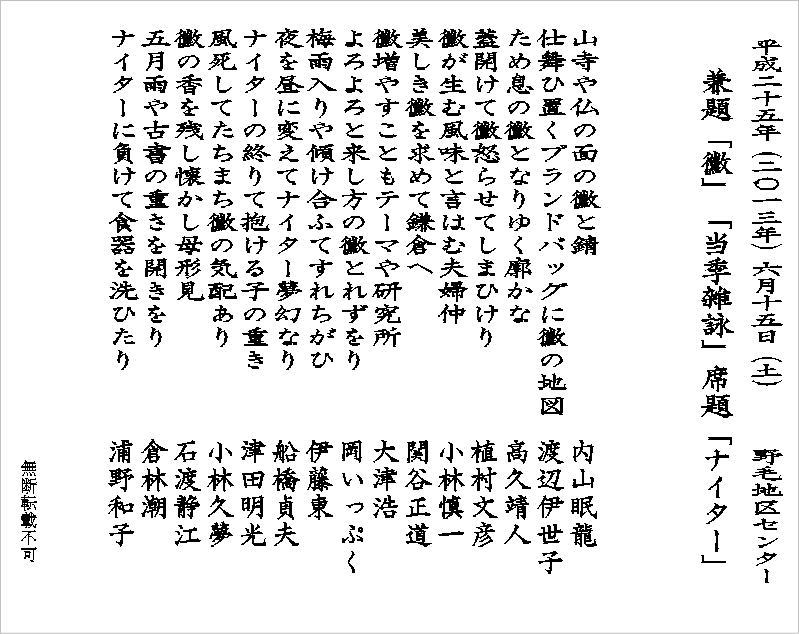 平成二十五年(二〇一三年)六月十五日(土) 野毛地区センター
兼題「黴」「当季雑詠」席題「ナイター」
山寺や仏の面の黴と錆 内山眠龍
仕舞ひ置くブランドバッグに黴の地図 渡辺伊世子
ため息の黴となりゆく廓かな 高久靖人
蓋開けて黴怒らせてしまひけり 植村文彦
黴が生む風味と言はむ夫婦仲 小林慎一
美しき黴を求めて鎌倉へ 関谷正道
黴増やすこともテーマや研究所 大津浩
よろよろと来し方の黴とれずをり 岡いっぷく
梅雨入りや傾け合ふてすれちがひ 伊藤東
夜を昼に変えてナイター夢幻なり 船橋貞夫
ナイターの終りて抱ける子の重き 津田明光
風死してたちまち黴の気配あり 小林久夢
黴の香を残し懐かし母形見 石渡静江
五月雨や古書の重さを開きをり 倉林潮
ナイターに負けて食器を洗ひたり 浦野和子
無断転載不可